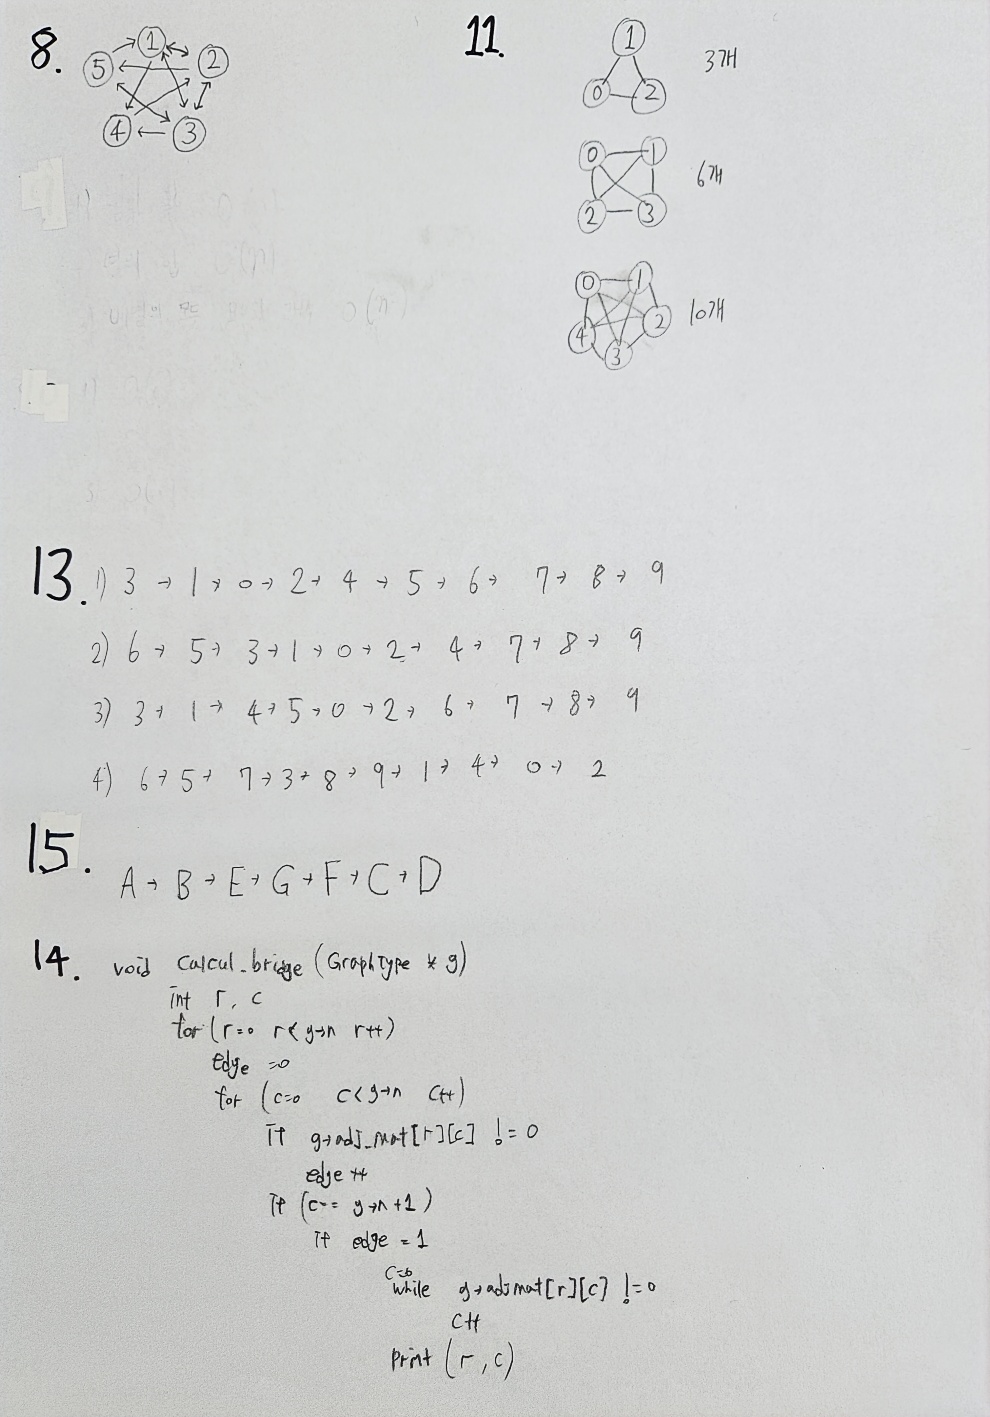 8.
1
5 2
4 3
11.
1
0 2
3개
0 1
2 3
6개
0 1
4 2
3
10개
13. 1) 3 → 1 → 0 → 2 → 4 → 5 → 6 → 7 → 8 → 9
2) 6 → 5 → 3 → 1 → 0 → 2 → 4 → 7 → 8 → 9
3) 3 → 1 → 4 → 5 → 0 → 2 → 6 → 7 → 8 → 9
4) 6 → 5 → 7 → 3 → 8 → 9 → 1 → 4 → 0 → 2
15. A → B → E → G → F → C → D
14. void Calcul_bridge (GraphType * g)
int r, c
for (r=0 r<g→n r++)
edge =0
for (c=0 c<g→n c++)
if g→adj_mat[r][c] != 0
edge ++
if (c== g→n+1)
if edge = 1
c=0
while g→adjmat[r][c] !=0
c++
print (r, c)